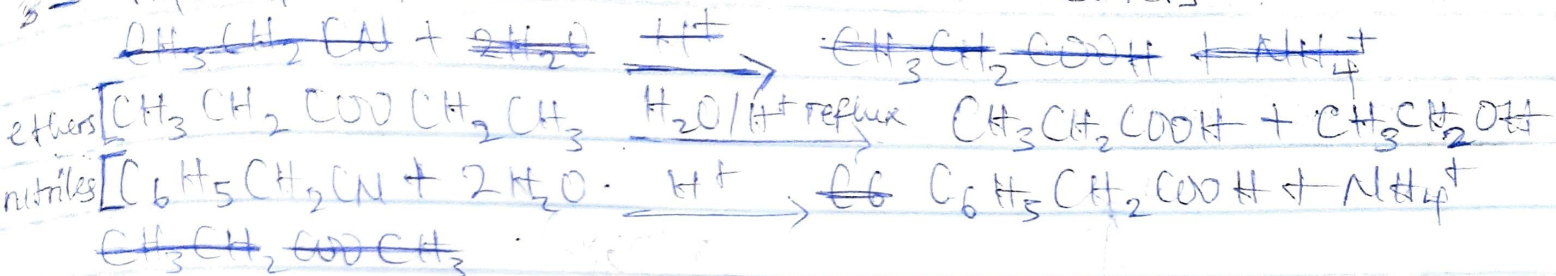 CH₃CH₂CN + 2H₂O H⁺ → CH₃CH₂COOH + NH₄⁺
ethers [CH₃CH₂COOCH₂CH₃ H₂O/H⁺ reflux → CH₃CH₂COOH + CH₃CH₂OH
nitriles [C₆H₅CH₂CN + 2H₂O. H⁺ → C6 C₆H₅CH₂COOH + NH₄⁺
CH₃CH₂COOCH₃